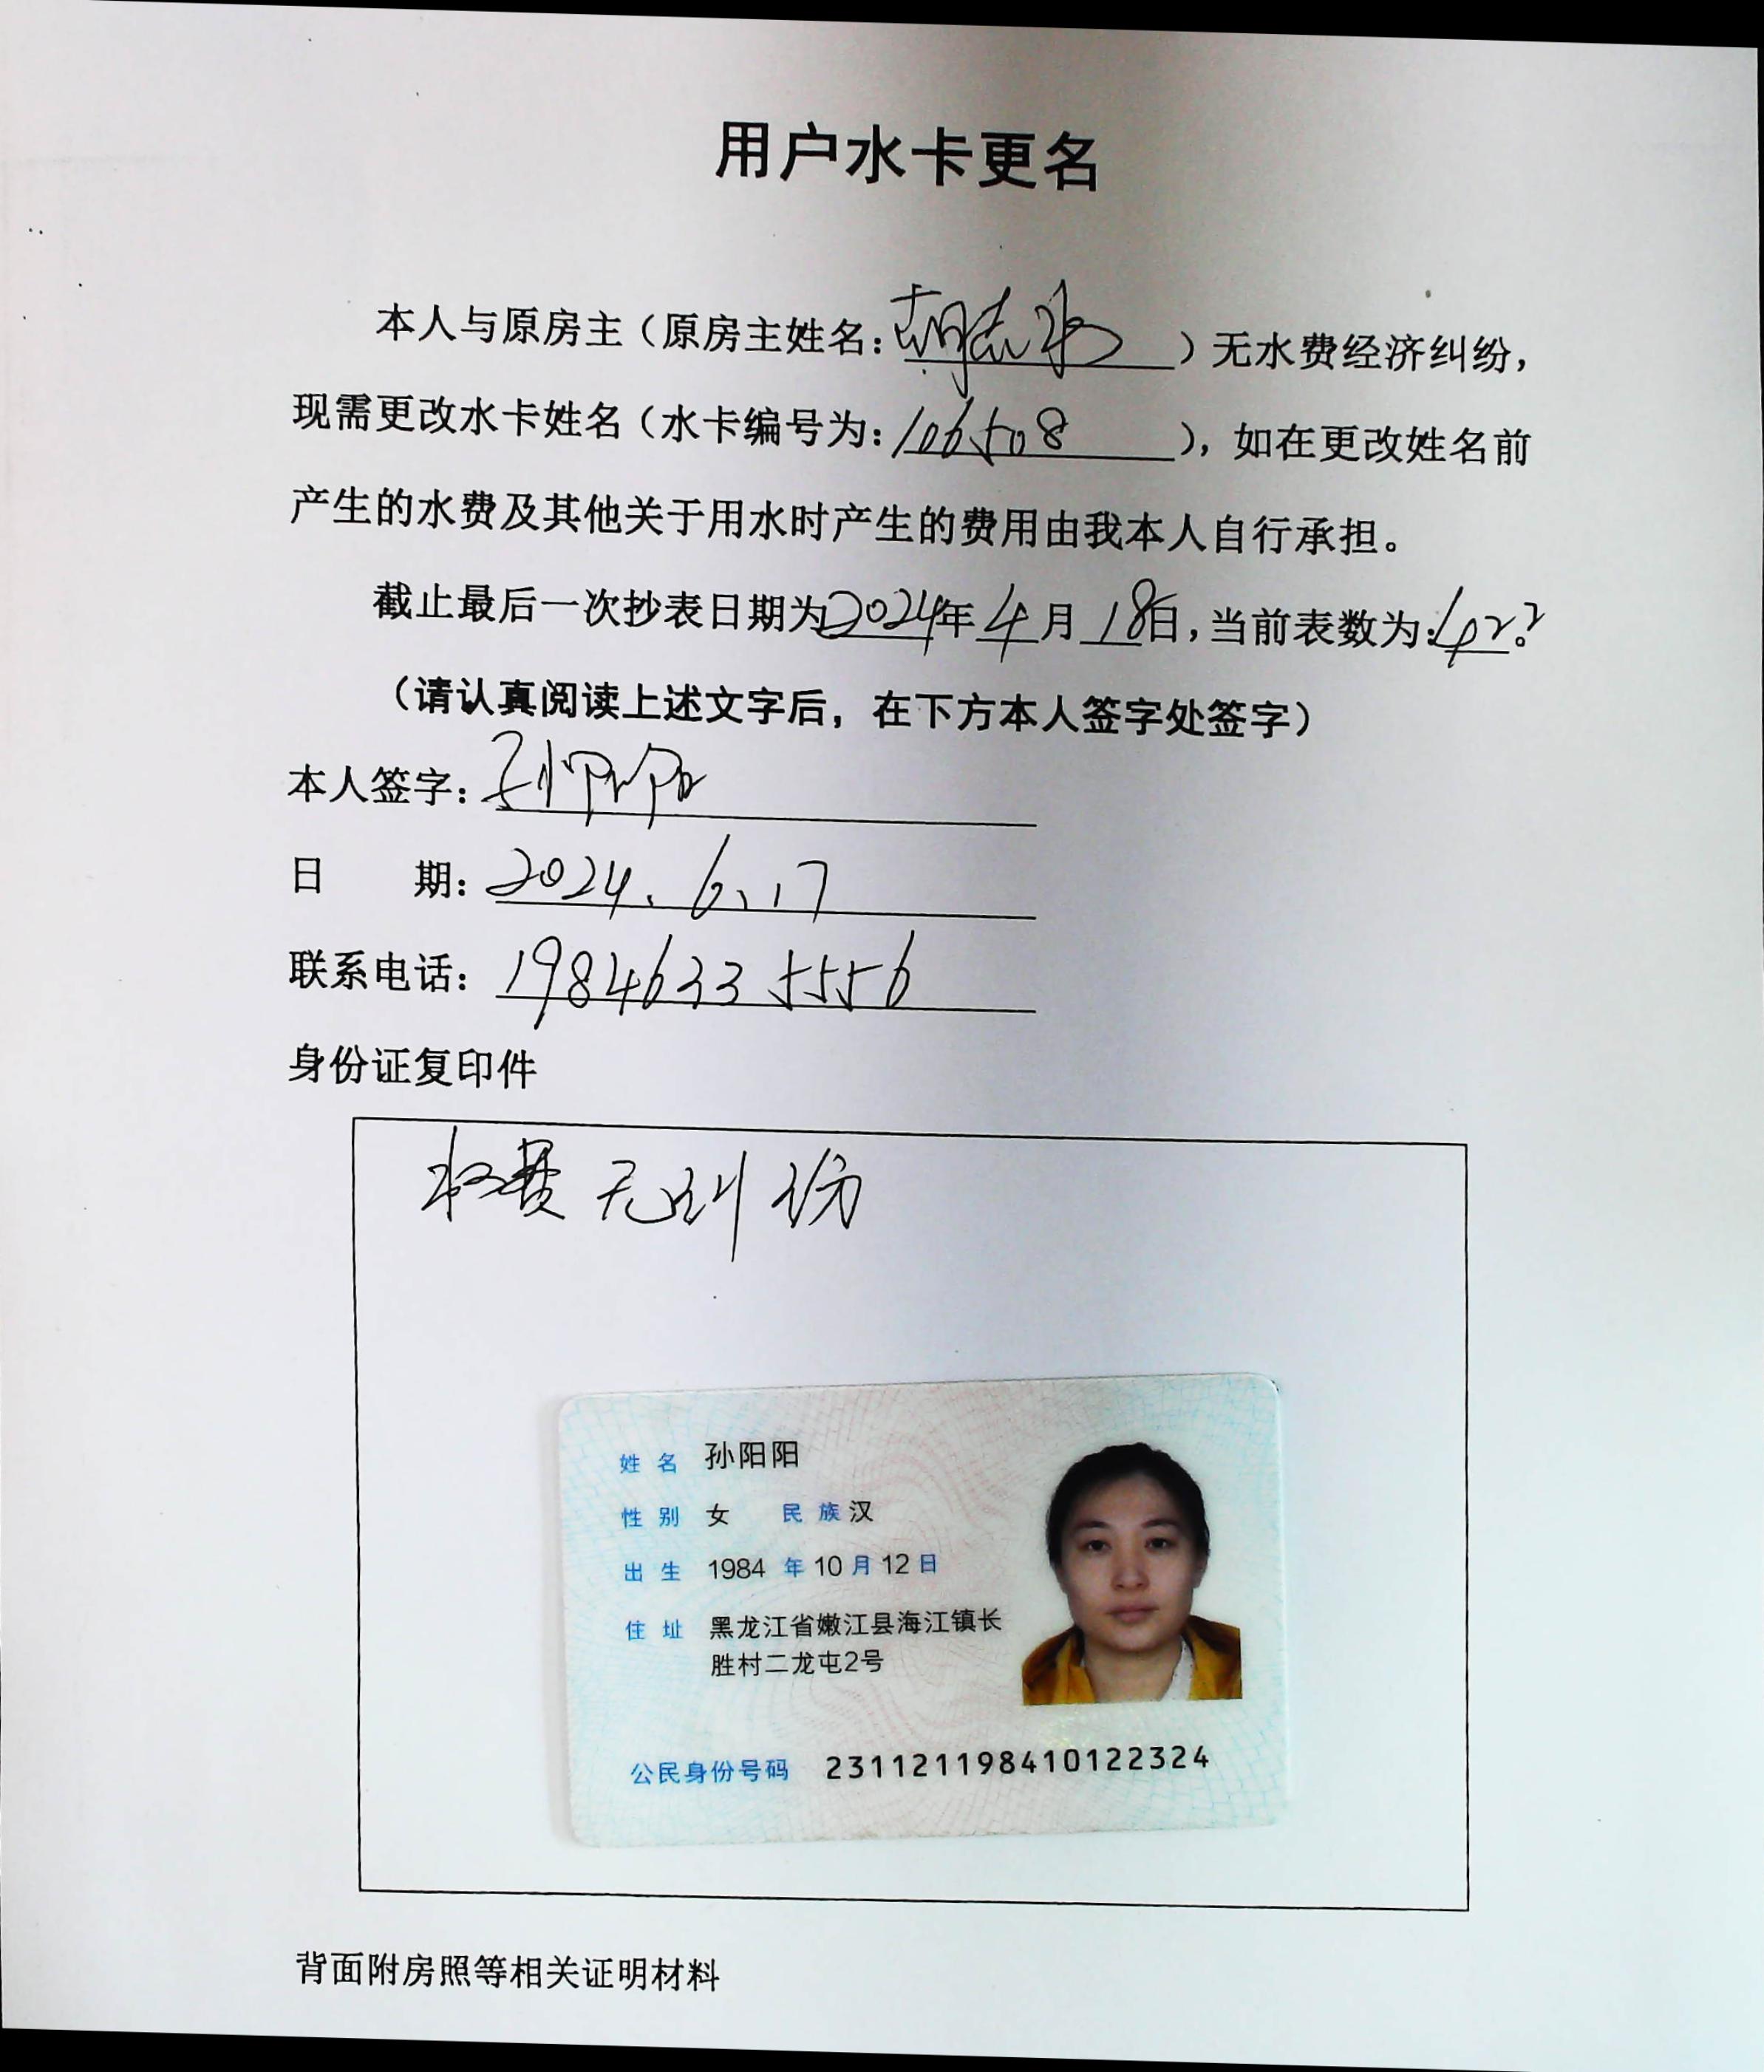 用户水卡更名
本人与原房主（原房主姓名：胡志）无水费经济纠纷，
现需更改水卡姓名（水卡编号为：106508），如在更改姓名前
产生的水费及其他关于用水时产生的费用由我本人自行承担。
截止最后一次抄表日期为2024年4月18日，当前表数为：。
（请认真阅读上述文字后，在下方本人签字处签字）
本人签字：孙阳阳
日 期：2024.6.17
联系电话：19846335556
身份证复印件
水费无纠纷
姓名 孙阳阳
性别 女 民族 汉
出生 1984年10月12日
住址 黑龙江省嫩江县海江镇长
胜村二龙屯2号
公民身份号码 231121198410122324
背面附房照等相关证明材料